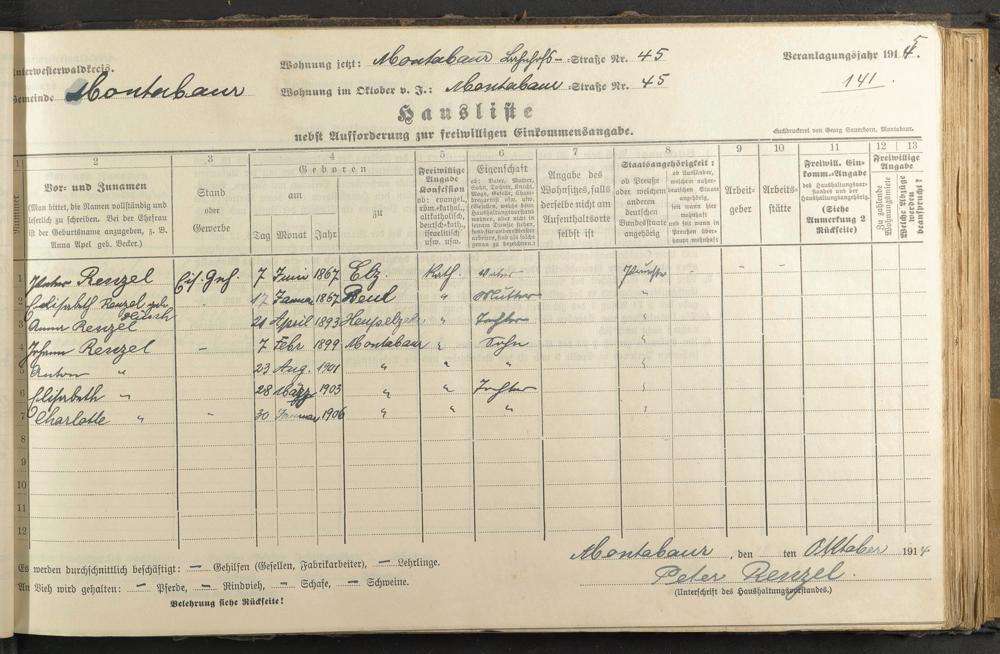 Unterwesterwaldkreis.
Gemeinde Montabaur
Wohnung jetzt: Montabaur Bahnhofs- Straße Nr. 45
Wohnung im Oktober v. J.: Montabaur Straße Nr. 45
Veranlagungsjahr 1915.
141
Hausliste
nebst Aufforderung zur freiwilligen Einkommensangabe.
Buchdruckerei von Georg Sauerborn, Montabaur.
1 2 3 4 5 6 7 8 9 10 11 12 13
Nummer
Vor- und Zunamen
(Man bittet, die Namen vollständig und
leserlich zu schreiben. Bei der Ehefrau
ist der Geburtsname anzugeben, z. B.
Anna Apel geb. Becker.)
Stand
oder
Gewerbe
Geboren
am
zu
Tag Monat Jahr
Freiwillige
Angabe
Konfession
ob: evangel.,
röm.-kathol.,
altkatholisch,
deutsch-kath.,
israelitisch
usw. usw.
Eigenschaft
ob: Vater, Mutter,
Sohn, Tochter, Knecht,
Magd, Geselle,
usw.
Angabe des
Wohnsitzes, falls
derselbe nicht am
Aufenthaltsorte
selbst ist
Staatsangehörigkeit:
ob Preuße
oder welchem
anderen
deutschen
Bundesstaate
angehörig
ob Ausländer,
welchem außer-
deutschen Staate
angehörig,
seit wann hier
wohnhaft
und seit wann in
Preußen über-
haupt wohnhaft
Arbeit-
geber
Arbeits-
stätte
Freiwill. Ein-
komm.-Angabe
des Haushaltungsvor-
standes und der
Haushaltungsangehörig.
(Siehe
Anmerkung 2
Rückseite)
Freiwillige
Angabe
Zu zahlende
Wohnungsmiete
Welche Abzüge
werden
beansprucht?
1 Peter Renzel Eis. Geh. 7 Juni 1867 Elz. Kath. Vater Preuße - - -
2 Elisabeth Renzel geb. 17 Januar 1867 " Mutter "
3 Anna Renzel 21 April 1893 " Tochter "
4 Johann Renzel - 7 Febr 1899 Montabaur " Sohn "
5 Anton " 23 Aug. 1901 " " " "
6 Elisabeth " 28 März 1903 " " Tochter "
7 Charlotte " " 30 Januar 1906 " " " "
8
9
10
11
12
Es werden durchschnittlich beschäftigt: — Gehilfen (Gesellen, Fabrikarbeiter), — Lehrlinge.
An Vieh wird gehalten: — Pferde, — Rindvieh, — Schafe, — Schweine.
Belehrung siehe Rückseite!
Montabaur, den ten Oktober 1914
Peter Renzel.
(Unterschrift des Haushaltungsvorstandes.)